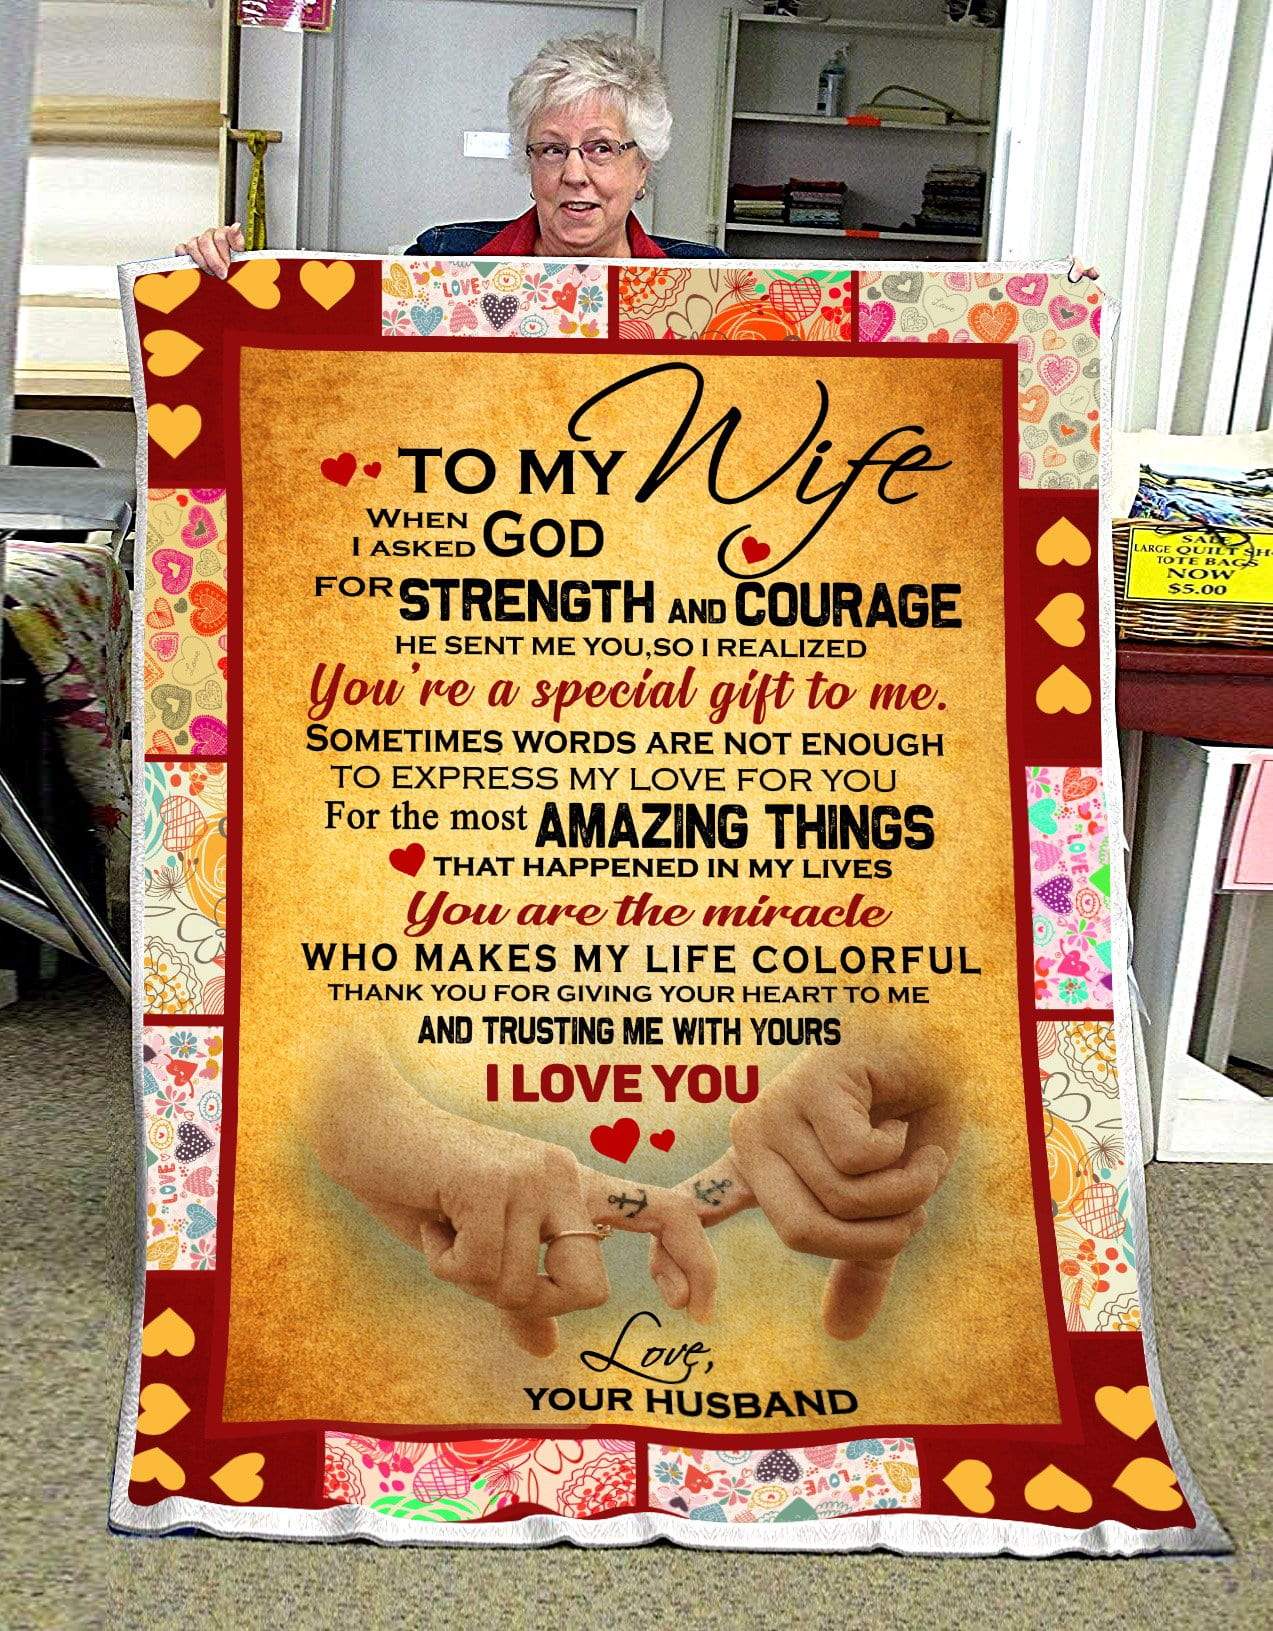 TO MY Wife
WHEN
I ASKED GOD
FOR STRENGTH AND COURAGE
HE SENT ME YOU,SO I REALIZED
You're a special gift to me.
SOMETIMES WORDS ARE NOT ENOUGH
TO EXPRESS MY LOVE FOR YOU
For the most AMAZING THINGS
THAT HAPPENED IN MY LIVES
You are the miracle
WHO MAKES MY LIFE COLORFUL
THANK YOU FOR GIVING YOUR HEART TO ME
AND TRUSTING ME WITH YOURS
I LOVE YOU
Love,
YOUR HUSBAND
SALE
LARGE QUILT SH
TOTE BAGS
NOW
$5.00
LOVE
Love
LOVE
Love
LOVE
LOVE
LOVE